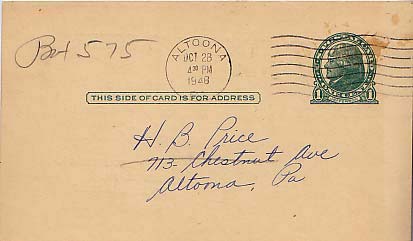 Box 575
ALTOONA
OCT 28
4 30 PM
1948
THIS SIDE OF CARD IS FOR ADDRESS
1 1
H. B. Price
713 Chestnut Ave
Altoona, Pa